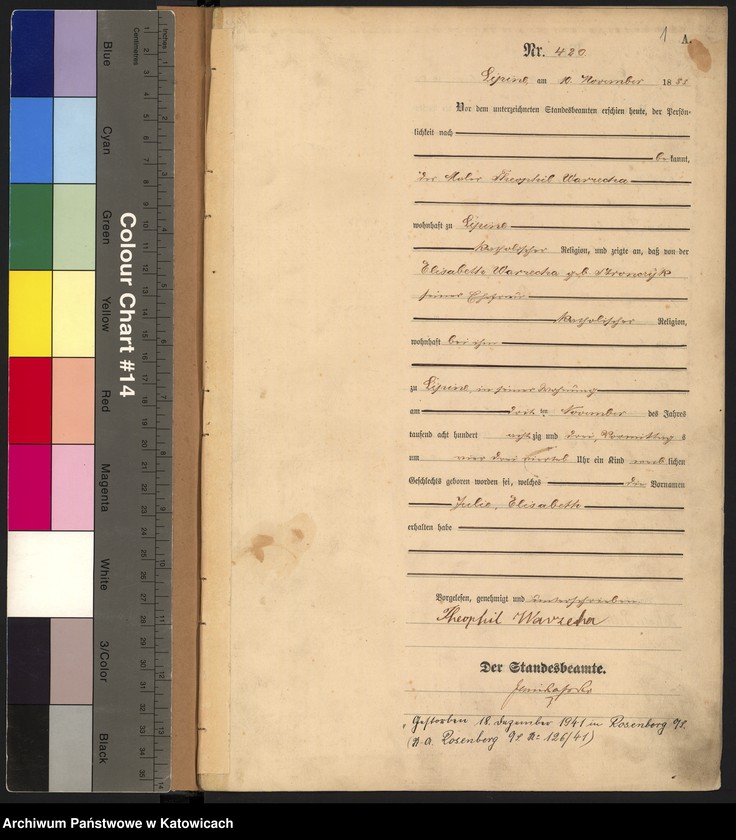 Blue
Cyan
Green
Yellow
Red
Magenta
White
3/Color
Black
Colour Chart #14
Inches
Centimetres
1 A.
Nr. 420
am 10. November 1883
Vor dem unterzeichneten Standesbeamten erschien heute, der Persön-
lichkeit nach
bekannt,
der Maler Theophil Warzecha
wohnhaft zu
katholischer Religion, und zeigte an, daß von der
Elisabetha Warzecha geb.
seiner Ehefrau
katholischer Religion,
wohnhaft bei ihm
zu in seiner Wohnung
am ten November des Jahres
tausend acht hundert achtzig und drei, Vormittag s
um vier drei viertel Uhr ein Kind weiblichen
Geschlechts geboren worden sei, welches die Vornamen
Julie, Elisabetha
erhalten habe
Vorgelesen, genehmigt und unterschrieben.
Theophil Warzecha
Der Standesbeamte.
Gestorben 18. Dezember 1941 in Rosenberg O/S.
Rosenberg O/S N: 126/41)
Archiwum Państwowe w Katowicach